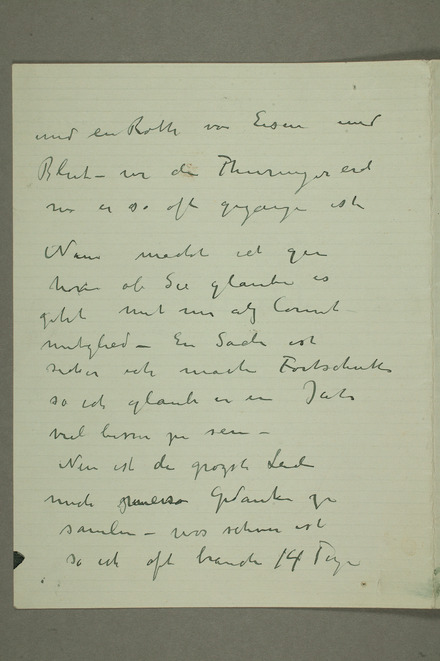 und en Rolle von Eisen und
Blut – in die Thuringer erd
wo er so oft gegangen ist
Nun macht ich gern
hören ob Sie glauben es
geht mit mir als Comit
mitglied – Ein Sache ist
sicher ich mache Fortschritte
so ich glaube er in Jahr
viel besser zu sein –
Nun ist die grozste Leid
meine Gedanken zu
samlen – was schwer ist
so ich oft brauche 14 Tage